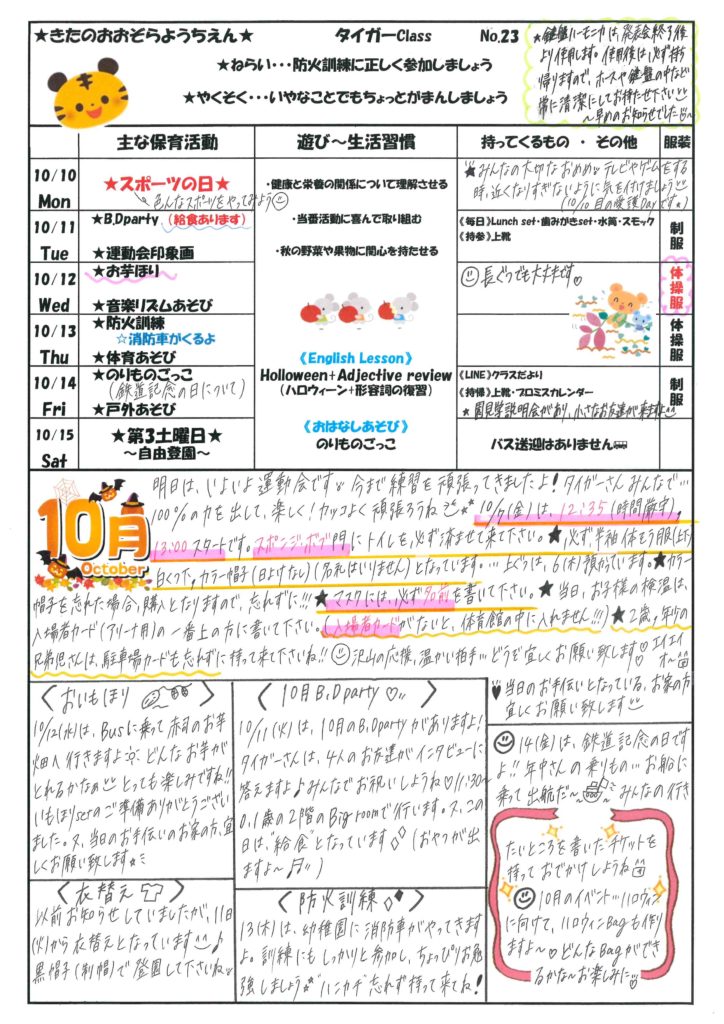 ★きたのおおぞらようちえん★ タイガーClass No.23
★ねらい・・・防火訓練に正しく参加しましょう
★やくそく・・・いやなことでもちょっとがまんしましょう
★鍵盤ハーモニカは、発表会終了後
より使用します。使用後は、必ず持ち
帰りますので、ホースや鍵盤の中など
常に清潔にしてお持たせ下さい
～早めのお知らせでした～
主な保育活動 遊び～生活習慣 持ってくるもの ・ その他 服装
10/10
Mon
★スポーツの日★
色んなスポーツをやってみよう
・健康と栄養の関係について理解させる
★みんなの大切なおめめ テレビやゲームをする
時、近くなりすぎないように気を付けましょう
(10/10 目の愛護Dayです。)
10/11
Tue
★B,Dparty (給食あります)
★運動会印象画
・当番活動に喜んで取り組む
・秋の野菜や果物に関心を持たせる
《毎日》Lunch set・歯みがきset・水筒・スモック
《持参》上靴
制服
10/12
Wed
★お芋ほり
★音楽リズムあそび
長ぐつでも大丈夫です
体操服
10/13
Thu
★防火訓練
☆消防車がくるよ
★体育あそび
体操服
《English Lesson》
Holloween+Adjective review
(ハロウィーン+形容詞の復習)
10/14
Fri
★のりものごっこ
(鉄道記念の日について)
★戸外あそび
《LINE》クラスだより
《持帰》上靴・プロミスカレンダー
★園見学説明会があり、小さなお友達が来ますよ
制服
10/15
Sat
★第3土曜日★
～自由登園～
《おはなしあそび》
のりものごっこ
バス送迎はありません
10月
October
明日は、いよいよ運動会です 今まで練習を頑張ってきましたよ!タイガーさんみんなで…
100%の力を出して、楽しく!カッコよく頑張ろうね 10/7(金)は、12:35(時間厳守)、
13:00 スタートです。スポンジ・ボブ門にトイレを必ず済ませて来て下さい。★必ず半袖体そう服(上下)
白くつ下、カラー帽子(日よけなし)(名札はいりません)となっています。…上ぐつは、6(木)預かっています。★カラー
帽子を忘れた場合、購入となりますので、忘れずに!!!★マスクには、必ず名前を書いて下さい。★当日、お子様の検温は、
入場者カード(アリーナ用)の一番上の方に書いて下さい。(入場者カードがないと、体育館の中に入れません!!!)★2歳、年少の
兄弟児さんは、駐車場カードも忘れずに持って来て下さいね!! 沢山の応援、温かい拍手…どうぞ宜しくお願い致します♡ エイエイ
オ～
♥当日のお手伝いとなっている、お家の方
宜しくお願い致します
〈おいもほり〉
10/12(水)は、Busに乗って赤司のお芋
畑へ行きますよ どんなお芋が
とれるかなぁ とっても楽しみですね!!
いもほりsetのご準備ありがとうござい
ました。又、当日のお手伝いのお家の方、宜
しくお願い致します
〈衣替え〉
以前お知らせしていましたが、11日
(火)から衣替えとなっています ♪
黒帽子(制帽)で登園して下さいね
〈10月B,Dparty♡〉
10/11(火)は、10月のB,Dpartyがありますよ!
タイガーさんは、4人のお友達がインタビューに
答えますよ♪みんなでお祝いしようね♡11:30～
0,1歳の2階のBig roomで行います。又、この
日は、"給食"となっています (おやつが出
ますよ～♬)
〈防火訓練〉
13(木)は、幼稚園に消防車がやってきます
よ。訓練にもしっかりと参加し、ちょっぴりお勉
強しましょう ハンカチ忘れず持って来てね!
14(金)は、鉄道記念の日です
よ!! 年中さんの乗りもの…お船に
乗って出航だ～ みんなの行き
たいところを書いたチケットを
持っておでかけしようね
10月のイベント…ハロウィン
に向けて、ハロウィンBagも作り
ますよ～♡どんなBagができ
るかな～お楽しみに♡